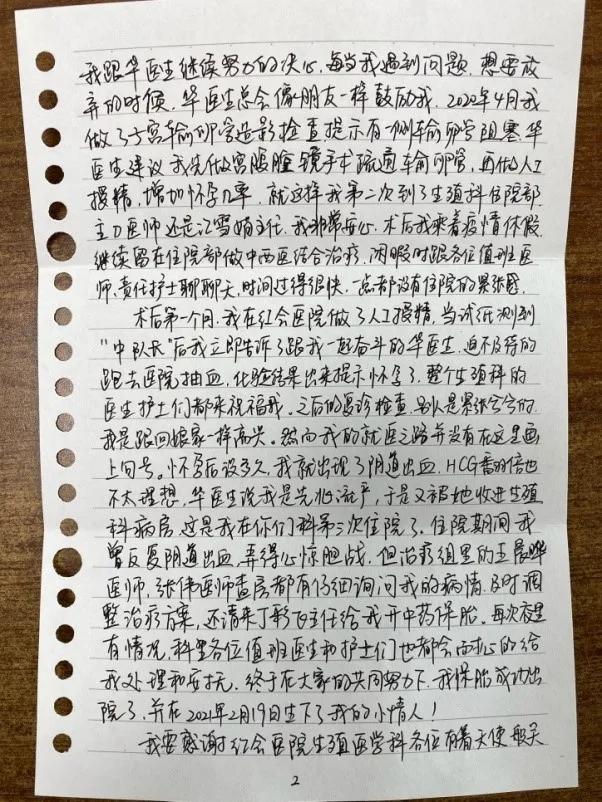 我跟华医生继续努力的决心，每当我遇到问题，想要放
弃的时候，华医生总会像朋友一样鼓励我。2020年4月我
做了子宫输卵管造影检查提示有一侧输卵管阻塞，华
医生建议我先做宫腹腔镜手术疏通输卵管，再做人工
授精，增加怀孕几率，就这样我第二次到了生殖科住院部
主刀医师还是江雪娟主任，我非常安心，术后我乘着疫情休假
继续留在住院部做中西医结合治疗，闲暇时跟各位值班医
师，责任护士聊聊天，时间过得很快，一点都没有住院的紧张感。
术后第一个月，我在红会医院做了人工授精，当试纸测到
“中队长”后我立即告诉了跟我一起奋斗的华医生，迫不及待的
跑去医院抽血，化验结果出来提示怀孕了，整个生殖科的
医生护士们都来祝福我。之后的复诊检查，别人是紧张兮兮的，
我是跟回娘家一样高兴。然而我的就医之路并没有在这里画
上句号。怀孕后没多久，我就出现了阴道出血，HCG翻倍也
不太理想，华医生说我是先兆流产，于是又被她收进生殖
科病房，这是我在你们科第三次住院了，住院期间我
曾反复阴道出血，弄得心惊胆战，但治疗组里的王晨晔
医师，张伟医师查房都有仔细询问我的病情，及时调
整治疗方案，还请来丁彩飞主任给我开中药保胎，每次夜里
有情况，科里各位值班医生和护士们也都会而担心的给
我处理和安抚，终于在大家的共同努力下，我保胎成功出
院了，并在2021年2月19日生下了我的小情人！
我要感谢红会医院生殖医学科各位有着天使般关
2